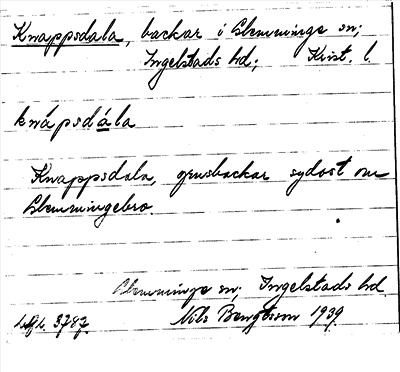 Knappsdala, backar i Glemminge sn;
Ingelstads hd; Krist. l.
knápsdála
Knappsdala, grusbackar sydost om
Glemmingebro.
Glemminge sn; Ingelstads hd.
3787. Nils Bengtsson 1939.